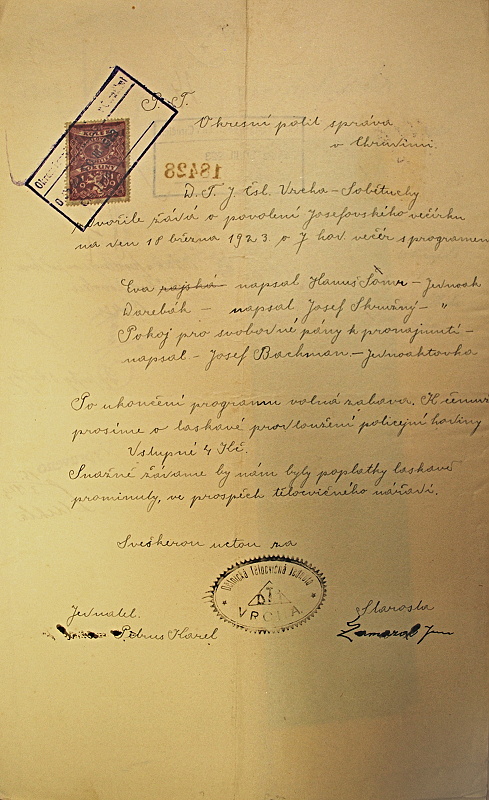 P. T.
Okresní polit správa
v Chrudimi.
18428
D. T. J. Čsl. Vrcha - Sobětuchy
zdvořile žádá o povolení Josefovského večírku
na den 18 března 1923 o 7 hod. večer s programem
Eva rajská - napsal Hanuš - Jednoak
Darebák - napsal Josef Skružný - "
Pokoj pro svobodné pány k pronajmutí -
napsal - Josef Bachman. - Jednoaktovka
Po ukončení programu volná zabava. K čemuž
prosíme o laskavé prodloužení policejní hodiny
Vstupné 4 Kč.
Snažně žádame by nám byly poplatky laskavě
prominuty, ve prospěch tělocvičného nářadí.
Sveškerou uctou za
Dělnická tělocvičná jednota
DTJ
VRCHA
Jednatel. Starosta
Petrus Karel